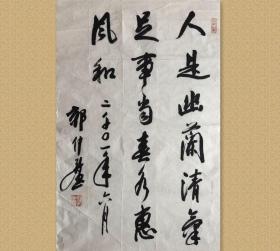 人是幽蘭清氣
足事尚春為惠
風和 二千〇一年六月
郭仲